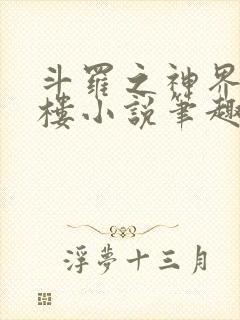 斗羅之神界
樓小說筆趣
浮夢十三月